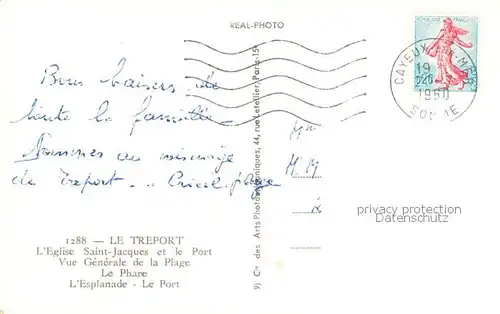 REAL-PHOTO
RÉPUBLIQUE FRANÇAISE
0,20
CAYEUX-SUR-MER
19
1960
SOMME
Bons baisers de
toute la famille
Sommes au
de Treport .. plage
Mr
M. M
1288 — LE TREPORT
L'Eglise Saint-Jacques et le Port
Vue Générale de la Plage
Le Phare
L'Esplanade - Le Port
9) Cie des Arts Photomécaniques, 44, rue Letellier, Paris-15e
privacy protection
www.ansichtskartenversand.com